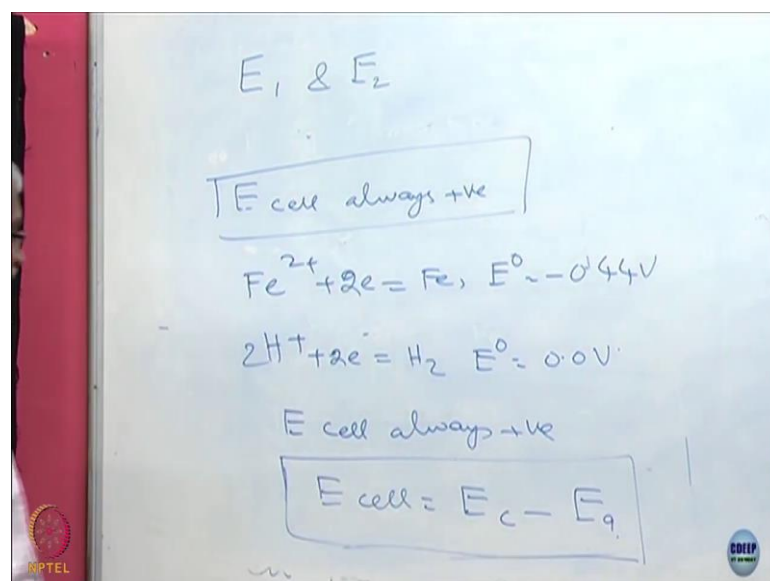 E₁ & E₂
E cell always +ve
Fe²⁺ + 2e = Fe, E⁰ = -0.44V
2H⁺ + 2e⁻ = H₂ E⁰ = 0.0V.
E cell always +ve
E cell = E_c - E_a
NPTEL
CDEEP
IIT BOMBAY